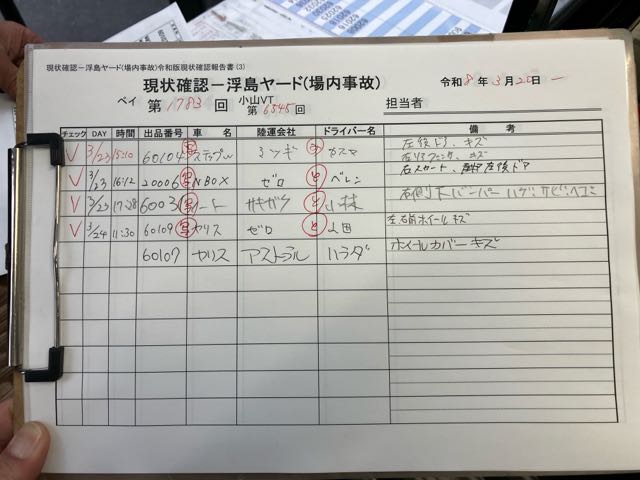 現状確認－浮島ヤード(場内事故)令和版現状確認報告書(3)
現状確認－浮島ヤード(場内事故)
令和 8 年 3 月 20 日
ベイ 第 1783 回 小山VT 第 6545 回 担当者
チェック DAY 時間 出品番号 車 名 陸運会社 ドライバー名 備 考
✓ 3/23 15:10 60104 写 カスヤ 左後ドア、キズ
キズ
✓ 3/23 16:12 20006 写 NBOX ゼロ ベレン 右スカート、左後ドア
✓ 3/23 17:28 写 ノート 小林 右側下バンパーハゲ、サビ、ヘコミ
✓ 3/24 11:30 60109 写 ヤリス ゼロ 山田 左右前ホイールキズ
60107 ヤリス アストラル ハラダ ホイールカバーキズ